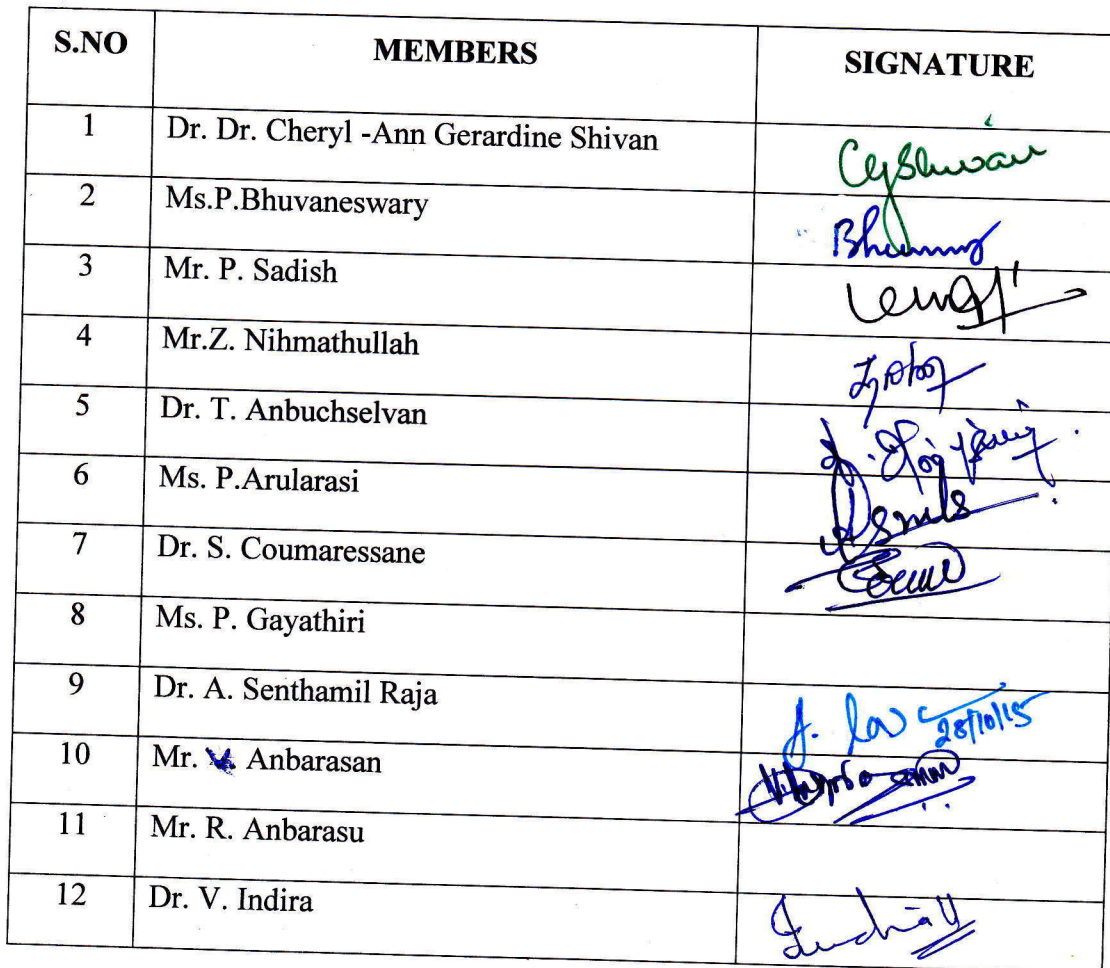 S.NO MEMBERS SIGNATURE
1 Dr. Dr. Cheryl -Ann Gerardine Shivan CgShivan
2 Ms.P.Bhuvaneswary
3 Mr. P. Sadish
4 Mr.Z. Nihmathullah
5 Dr. T. Anbuchselvan
6 Ms. P.Arularasi
7 Dr. S. Coumaressane
8 Ms. P. Gayathiri
9 Dr. A. Senthamil Raja 28/10/15
10 Mr. V. Anbarasan
11 Mr. R. Anbarasu
12 Dr. V. Indira Indira V